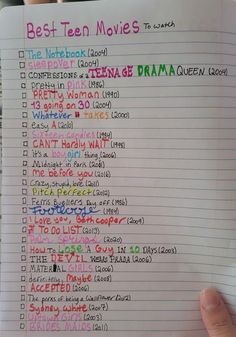 Best Teen Movies To watch
The Notebook (2004)
sleepover (2004)
CONFESSIONS of a TEENAGE DRAMA QUEEN (2004)
pretty in pink (1986)
PRETTY Woman (1990)
13 going on 30 (2004)
Whatever it takes (2000)
easy A (2010)
Sixteen candles (1984)
CAN'T Hardly WAIT (1998)
it's a boy girl thing (2006)
Midnight in Paris (2011)
me before you (2016)
Crazy, stupid, love (2011)
Pitch perfect (2012)
Ferris Buellers Day off (1986)
Footloose (1984)
I Love you, Beth cooper (2009)
THE TO DO LIST (2013)
Palm Springs (2020)
How to LOSE A Guy IN 10 Days (2003)
THE DEVIL wears PRADA (2006)
MATERIAL GIRLS (2006)
definitely, Maybe (2008)
ACCEPTED (2006)
The perks of being a wallflower (2012)
Sydney white (2007)
Uptown Girls (2003)
BRIDES MAIDS (2011)